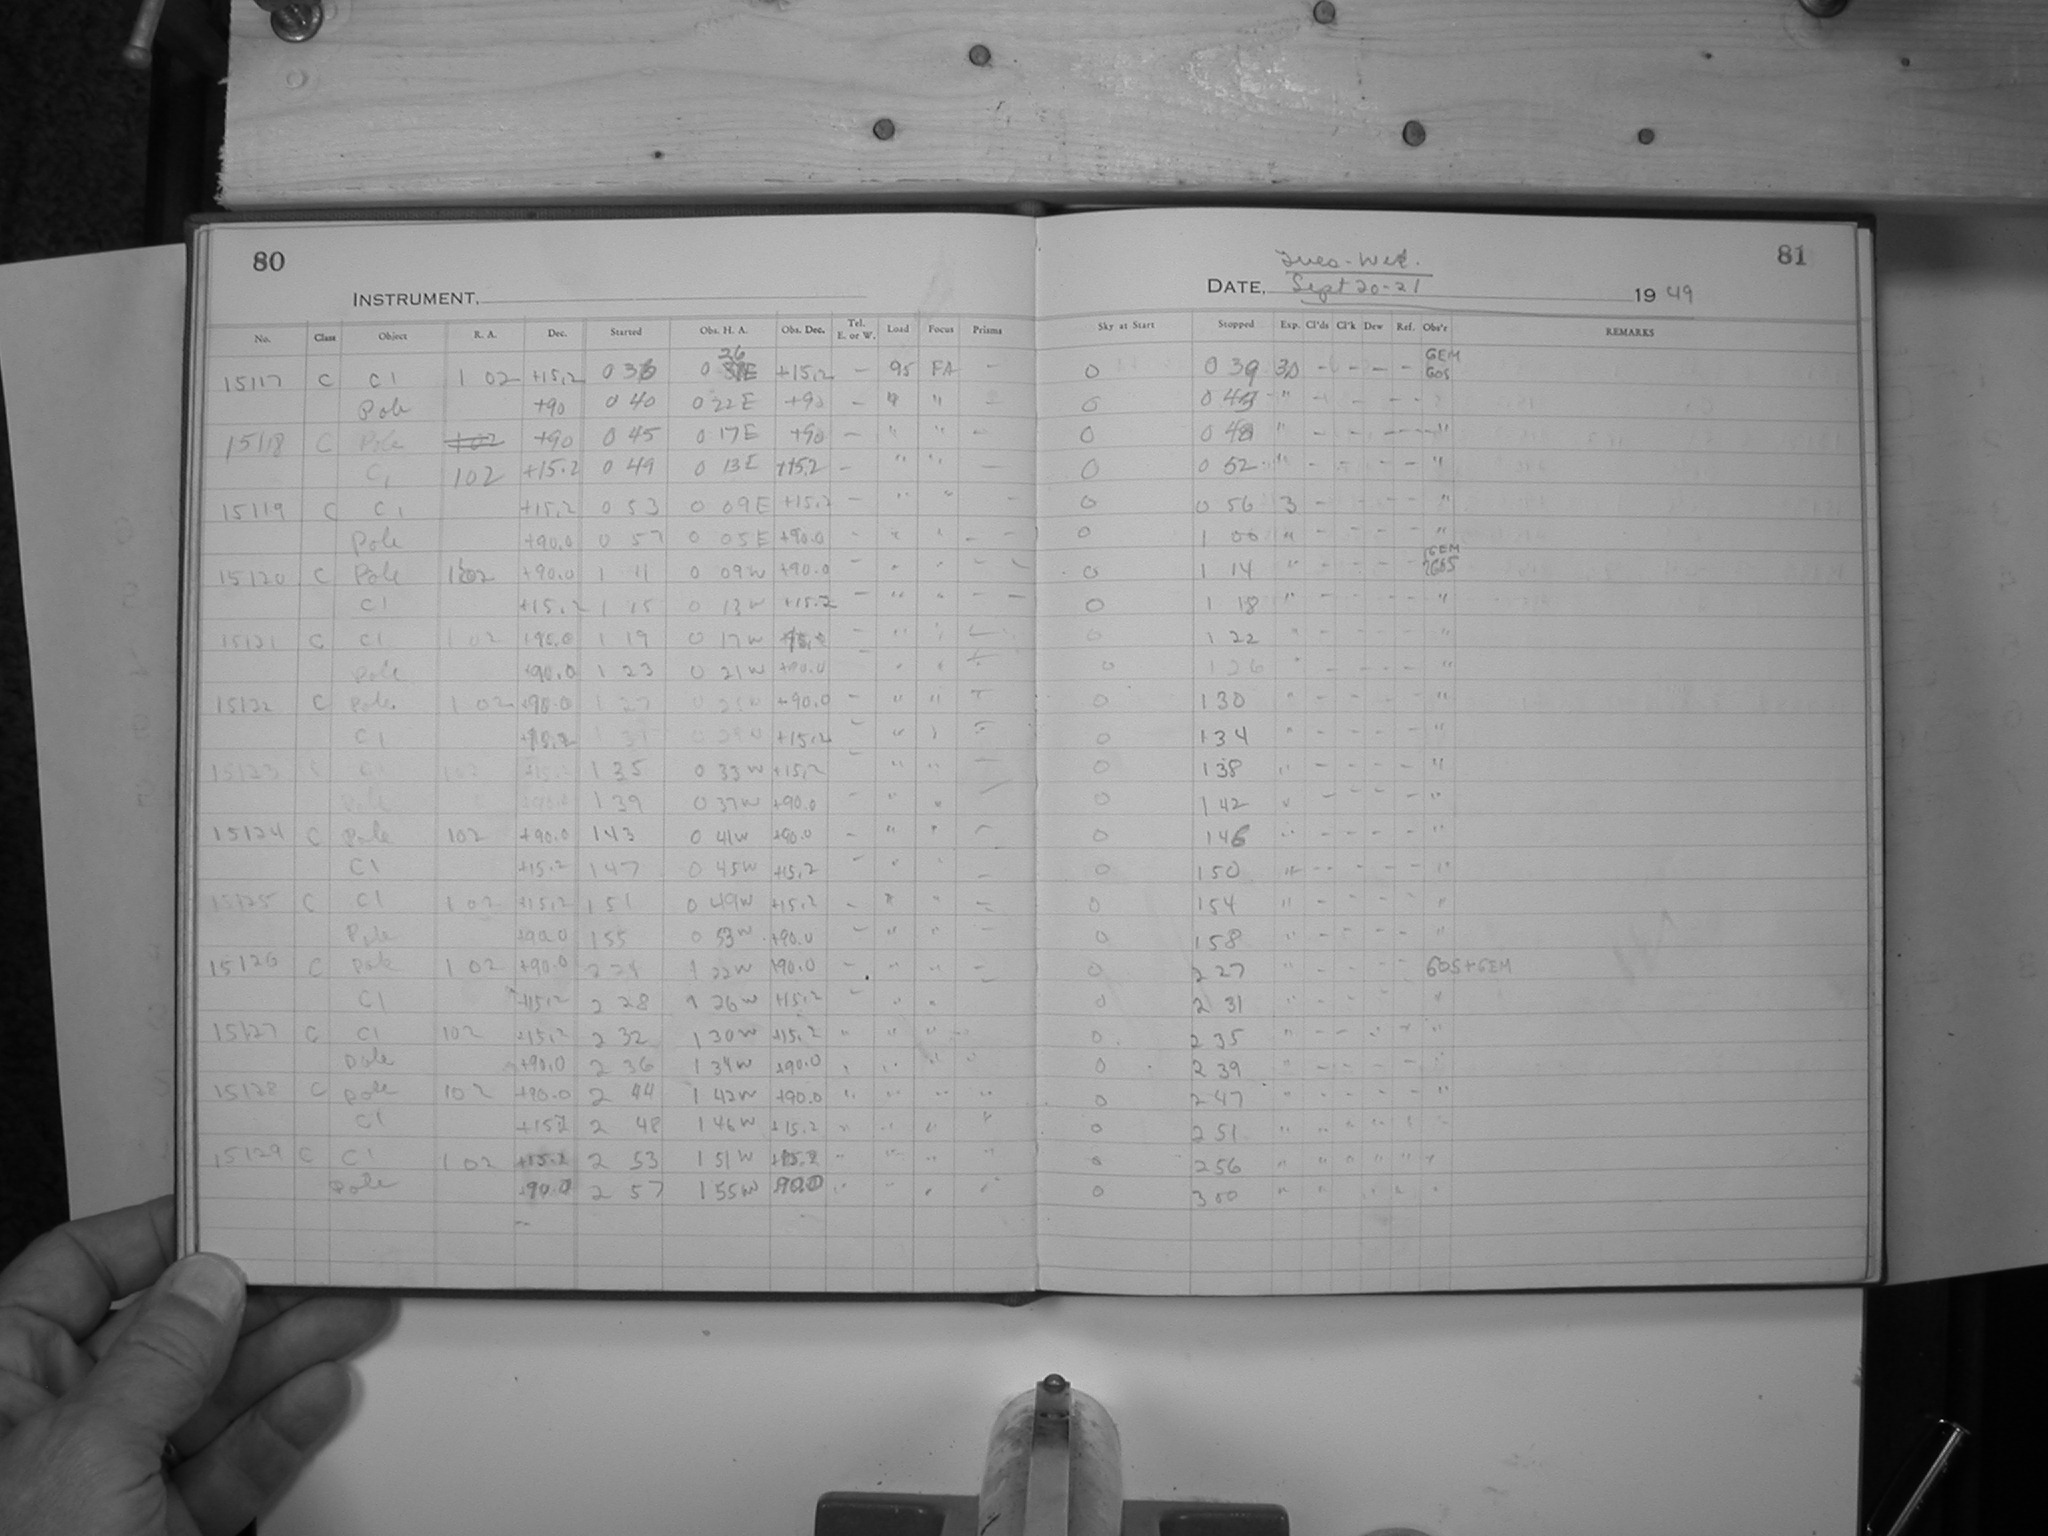 80
INSTRUMENT,
No. Class Object R. A. Dec. Started Obs. H. A. Obs. Dec. Tel. E. or W. Load Focus Prisms
15117 C C1 1 02 +15.2 0 36 0 26 E +15.2 - 95 FA -
Pole +90 0 40 0 22E +90 - " "
15118 C Pole +90 0 45 0 17E +90 - " " -
C1 102 +15.2 0 49 0 13E +15.2 - " " -
15119 C C1 +15.2 0 53 0 09E +15.2 - " " -
Pole +90.0 0 57 0 05E +90.0 - " " - -
15120 C Pole 102 +90.0 1 11 0 09W +90.0 - " " - -
C1 +15.2 1 15 0 13W +15.2 - " " - -
15121 C C1 1 02 1 19 0 17W - " "
Pole +90.0 1 23 0 21W +90.0 - " "
15122 C Pole 1 02 +90.0 1 27 0 25W +90.0 - " "
C1 +15.2 1 31 0 29W +15.2 - " "
15123 C C1 102 +15.2 1 35 0 33W +15.2 " " -
Pole +90.0 1 39 0 37W +90.0 - " " -
15124 C Pole 102 +90.0 143 0 41W +90.0 - " " -
C1 +15.2 147 0 45W +15.2 - " " -
15125 C C1 1 02 +15.2 151 0 49W +15.2 - " " -
Pole +90.0 155 0 53W +90.0 - " " -
15126 C Pole 1 02 +90.0 2 24 1 22W +90.0 - " " -
C1 +15.2 2 28 1 26W +15.2 - " "
15127 C C1 102 +15.2 2 32 1 30W +15.2 " " "
Pole +90.0 2 36 1 34W +90.0 " " " "
15128 C Pole 102 +90.0 2 44 1 42W +90.0 " " " "
C1 +15.2 2 48 1 46W +15.2 " " " "
15129 C C1 1 02 +15.2 2 53 1 51W +15.2 " " " "
Pole +90.0 2 57 1 55W +90.0 " " " "
81
Tues-Wed.
DATE, Sept 20-21 19 49
Sky at Start Stopped Exp. Cl'ds Cl'k Dew Ref. Obs'r REMARKS
0 0 39 30 - - - - GEM GOS
0 0 43 " - - - - "
0 0 48 " - - - - "
0 0 52 " - - - - "
0 0 56 3 - - - - "
0 1 00 " - - - - "
0 1 14 " - - - - GEM GOS
0 1 18 " - - - - "
0 1 22 " - - - - "
0 1 26 " - - - - "
0 130 " - - - - "
0 134 " - - - - "
0 138 " - - - - "
0 142 " - - - - "
0 146 " - - - - "
0 150 " - - - - "
0 154 " - - - - "
0 158 " - - - - "
0 2 27 " - - - - GOS+GEM
0 2 31 " - - - - "
0 2 35 " - - - - "
0 2 39 " - - - - "
0 2 47 " - - - - "
0 2 51 " " " " "
0 2 56 " " " " " "
0 3 00 " " " " "